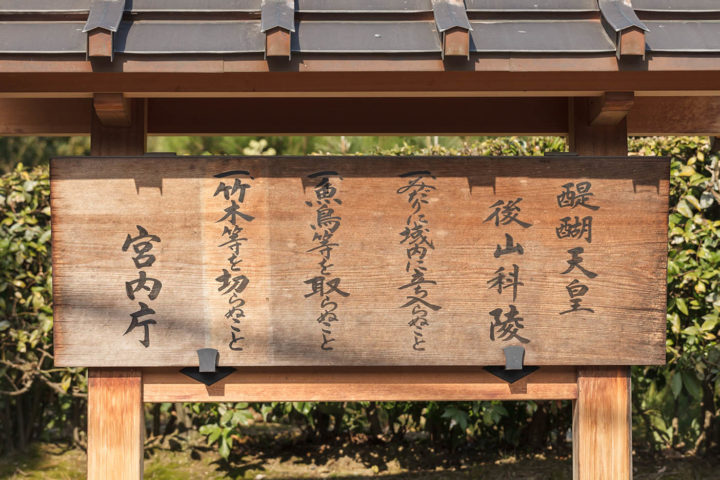 醍醐天皇
後山科陵
一みだりに域内に立ち入らぬこと
一魚鳥等を取らぬこと
一竹木等を切らぬこと
宮内庁